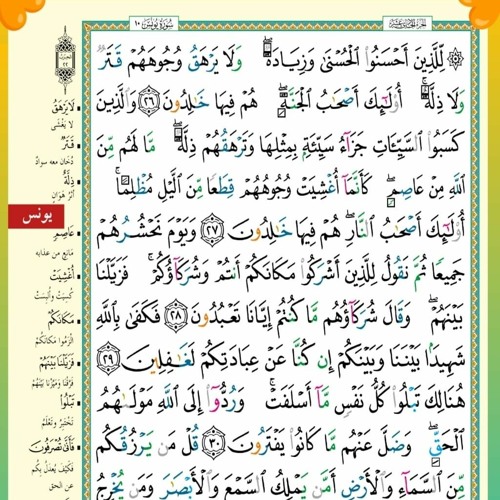 الجزء الحادي عشر
سورة يونس ١٠
لِّلَّذِينَ أَحْسَنُوا۟ ٱلْحُسْنَىٰ وَزِيَادَةٌ ۖ وَلَا يَرْهَقُ وُجُوهَهُمْ قَتَرٌ
وَلَا ذِلَّةٌ ۚ أُو۟لَـٰٓئِكَ أَصْحَـٰبُ ٱلْجَنَّةِ ۖ هُمْ فِيهَا خَـٰلِدُونَ ٢٦ وَٱلَّذِينَ
كَسَبُوا۟ ٱلسَّيِّـَٔاتِ جَزَآءُ سَيِّئَةٍۭ بِمِثْلِهَا وَتَرْهَقُهُمْ ذِلَّةٌ ۖ مَّا لَهُم مِّنَ
ٱللَّهِ مِنْ عَاصِمٍ ۖ كَأَنَّمَآ أُغْشِيَتْ وُجُوهُهُمْ قِطَعًا مِّنَ ٱلَّيْلِ مُظْلِمًا ۚ
أُو۟لَـٰٓئِكَ أَصْحَـٰبُ ٱلنَّارِ ۖ هُمْ فِيهَا خَـٰلِدُونَ ٢٧ وَيَوْمَ نَحْشُرُهُمْ
جَمِيعًا ثُمَّ نَقُولُ لِلَّذِينَ أَشْرَكُوا۟ مَكَانَكُمْ أَنتُمْ وَشُرَكَآؤُكُمْ ۚ فَزَيَّلْنَا
بَيْنَهُمْ ۖ وَقَالَ شُرَكَآؤُهُم مَّا كُنتُمْ إِيَّانَا تَعْبُدُونَ ٢٨ فَكَفَىٰ بِٱللَّهِ
شَهِيدًۢا بَيْنَنَا وَبَيْنَكُمْ إِن كُنَّا عَنْ عِبَادَتِكُمْ لَغَـٰفِلِينَ ٢٩
هُنَالِكَ تَبْلُوا۟ كُلُّ نَفْسٍ مَّآ أَسْلَفَتْ ۚ وَرُدُّوٓا۟ إِلَى ٱللَّهِ مَوْلَىٰهُمُ
ٱلْحَقِّ ۖ وَضَلَّ عَنْهُم مَّا كَانُوا۟ يَفْتَرُونَ ٣٠ قُلْ مَن يَرْزُقُكُم
مِّنَ ٱلسَّمَآءِ وَٱلْأَرْضِ أَمَّن يَمْلِكُ ٱلسَّمْعَ وَٱلْأَبْصَـٰرَ وَمَن يُخْرِجُ
لَا يَرْهَقُ
لا يغشى
قَتَرٌ
دخان معه سواد
ذِلَّةٌ
أثر هوان
يونس
عَاصِمٍ
مانع من عذابه
أُغْشِيَتْ
كسيت وألبست
مَكَانَكُمْ
الزموا مكانكم
فَزَيَّلْنَا بَيْنَهُمْ
فرقنا وميزنا بينهم
تَبْلُوا
تختبر وتعلم
فَأَنَّىٰ تُصْرَفُونَ
فكيف يعدل بكم
عن الحق